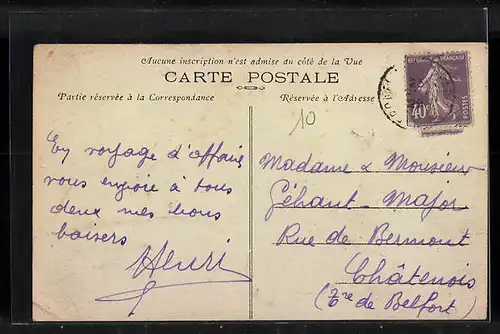 Aucune inscription n'est admise au côté de la Vue
CARTE POSTALE
Partie réservée à la Correspondance
Réservée à l'Adresse
RÉPUBLIQUE FRANÇAISE
40c
POSTES
10
En voyage d'affaire
vous envoie à tous
deux mes bons
baisers
Henri
Madame & Monsieur
Géhant-Major
Rue de Bermont
Châtenois
(Tre de Belfort)